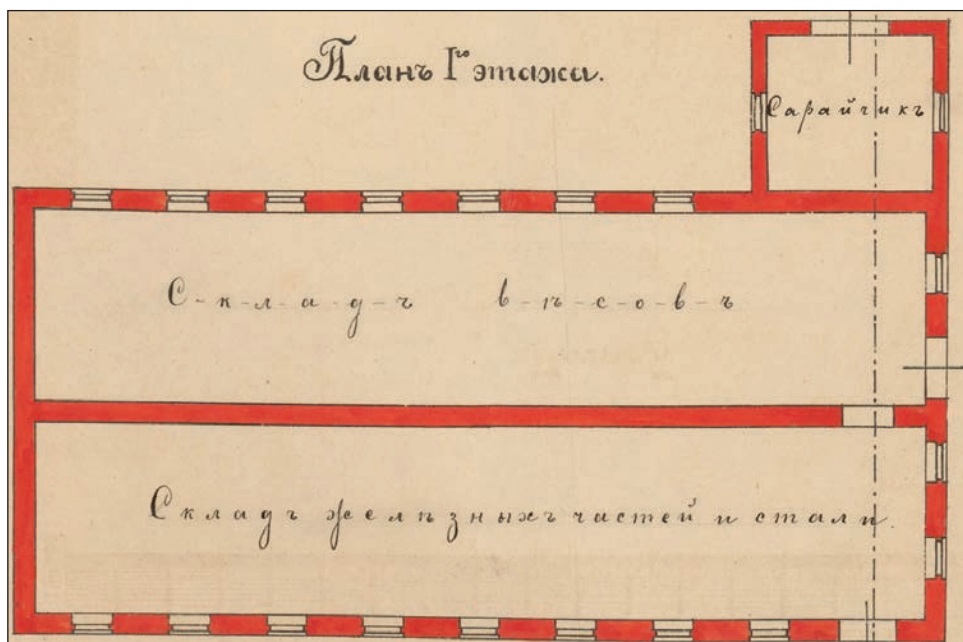 Планъ Iго этажа.
Сарайчикъ
Складъ вѣсовъ
Складъ желѣзныхъ частей и стали.